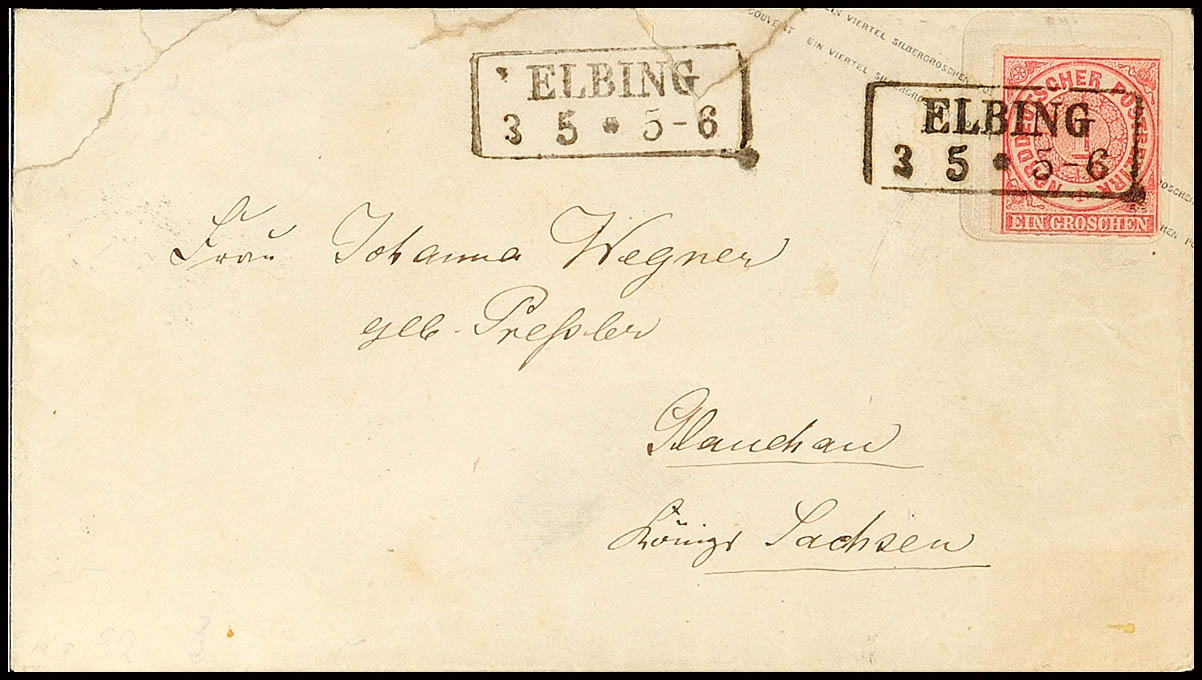 COUVERT EIN VIERTEL SILBERGROSCHEN POST
EIN VIERTEL SILBERGROSCHEN
ELBING
3 5 * 5-6
ELBING
3 5 * 5-6
NORDDEUTSCHER POSTBEZIRK
1
EIN GROSCHEN
Frau Johanna Wegner
geb. Preßler
Glauchau
Königr Sachsen